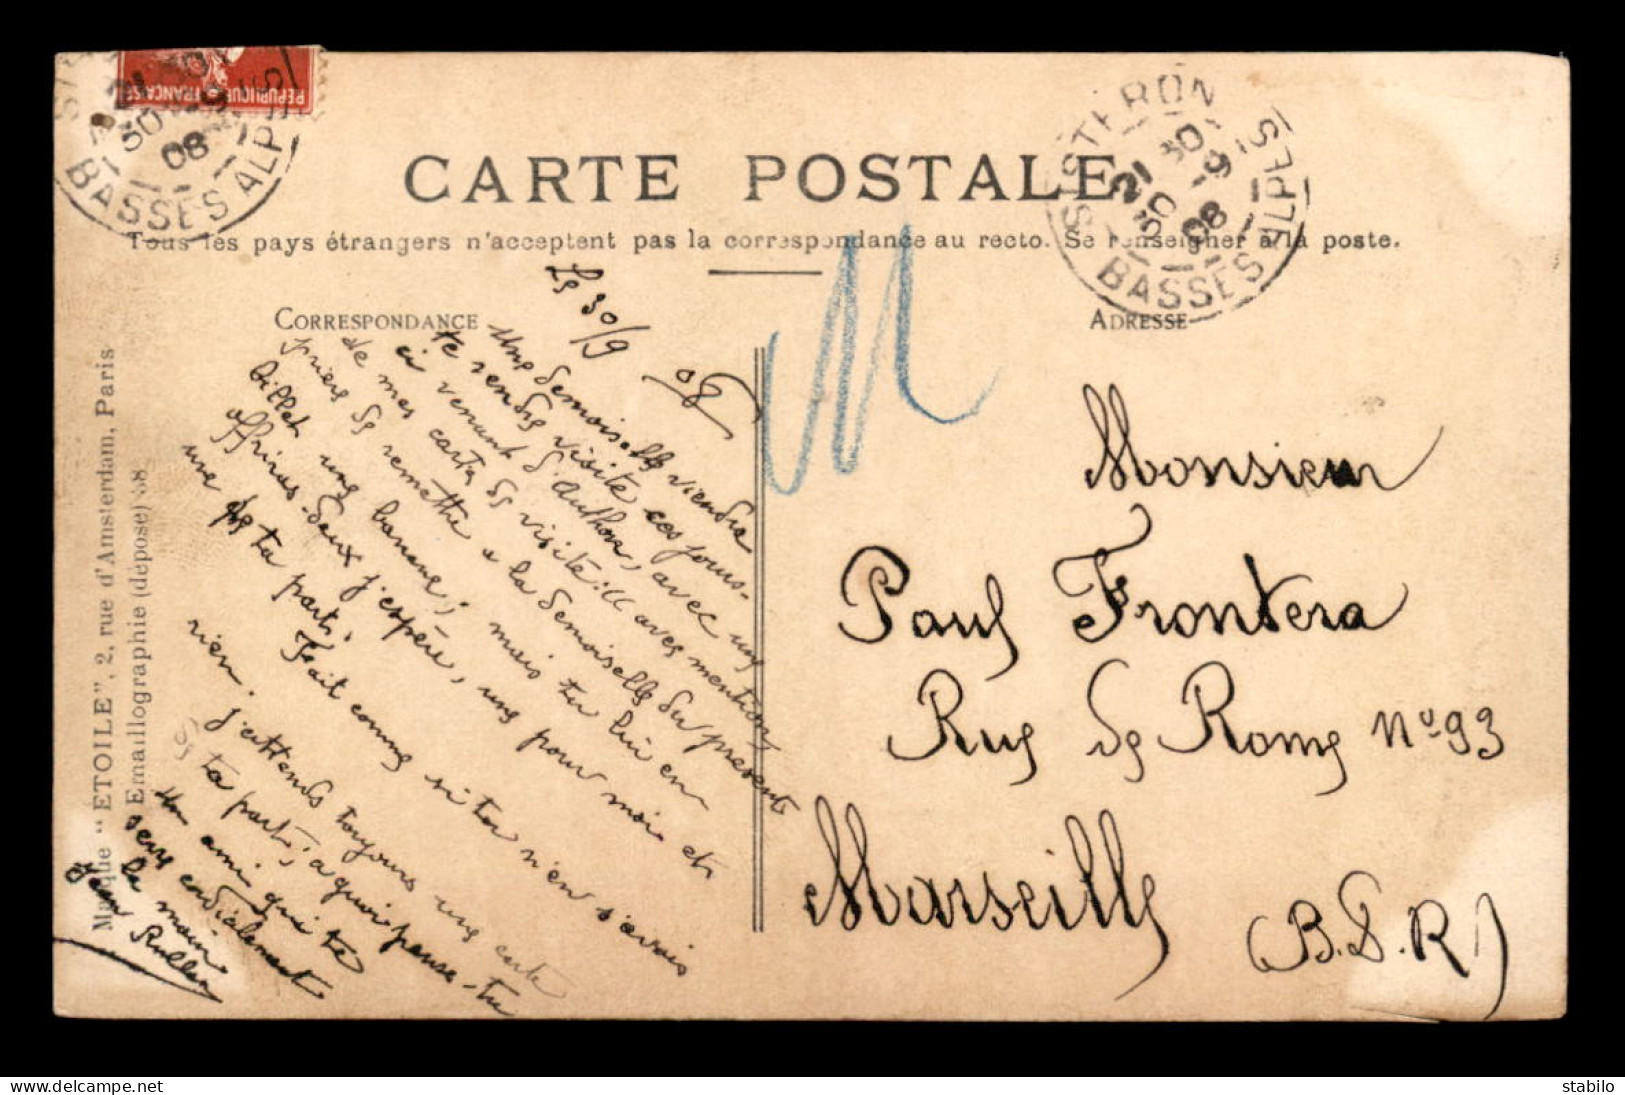 RÉPUBLIQUE FRANÇAISE
SISTERON
21 30
30 -9
08
BASSES ALPES
SISTERON
21 30
30 -9
08
BASSES ALPES
CARTE POSTALE
Tous les pays étrangers n'acceptent pas la correspondance au recto. Se renseigner à la poste.
CORRESPONDANCE
ADRESSE
Le 30/9 08
Une demoiselle viendra
te rendre visite ces jours-
ci venant d'Authon, avec une
de mes carte de visite: (( avec mention,
prière de remettre a la demoiselle du present
billet une banane; mais tu lui en
offriras deux j'espère, une pour moi et
une de ta part.
Fait comme si tu n'en savais
rien. j'attends toujours une carte
de ta part; a quoi pense-tu
Un ami qui te
serre cordialement
la main
Jean Rullan
Monsieur
Paul Frontera
Rue de Rome No 93
Marseille
(B. d. R)
Marque "ETOILE", 2, rue d'Amsterdam, Paris
Emaillographie (déposé) 38
delcampe.net
stabilo